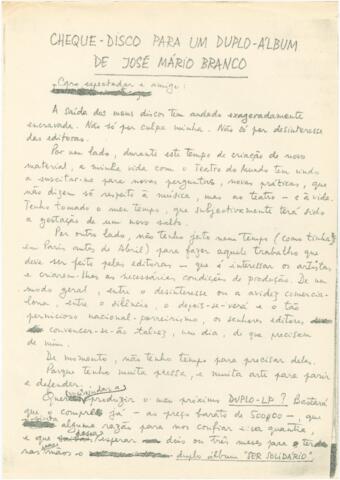 CHEQUE-DISCO PARA UM DUPLO-ÁLBUM
DE JOSÉ MÁRIO BRANCO
Caro espectador e amigo:
A saída dos meus discos tem andado exageradamente
encravada. Não só por culpa minha. Não só por desinteresse
das editoras.
Por um lado, durante este tempo de criação de novo
material, a minha vida com o Teatro do Mundo tem vindo
a suscitar-me para novas perguntas, novas práticas, que
não dizem só respeito à música, mas ao teatro - e à vida.
Tenho tomado o meu tempo, que subjectivamente terá sido
a gestação de um novo salto.
Por outro lado, não tenho feito nem tempo (como tinha
em Paris antes de Abril) para fazer aquele trabalho que
deve ser feito pelas editoras - que é interessar os artistas,
e criarem-lhes as necessárias condições de produção. De um
modo geral, entre o desinteresse ou a avidez comercia-
lona, entre o silêncio, o depois-se-verá e o tão
pernicioso nacional-porreirismo, os senhores editores
convencer-se-ão talvez, um dia, de que precisam
de mim.
De momento, não tenho tempo para precisar deles.
Porque tenho muita pressa, e muita arte para parir
e defender.
Quer produzir o meu próximo DUPLO-LP? Bastará
que o compre já - ao preço barato de 500$00 -, que
alguma razão para nos confiar essa quantia,
e que esperar dois ou três meses para ter
nas mãos o duplo álbum "SER SOLIDÁRIO".